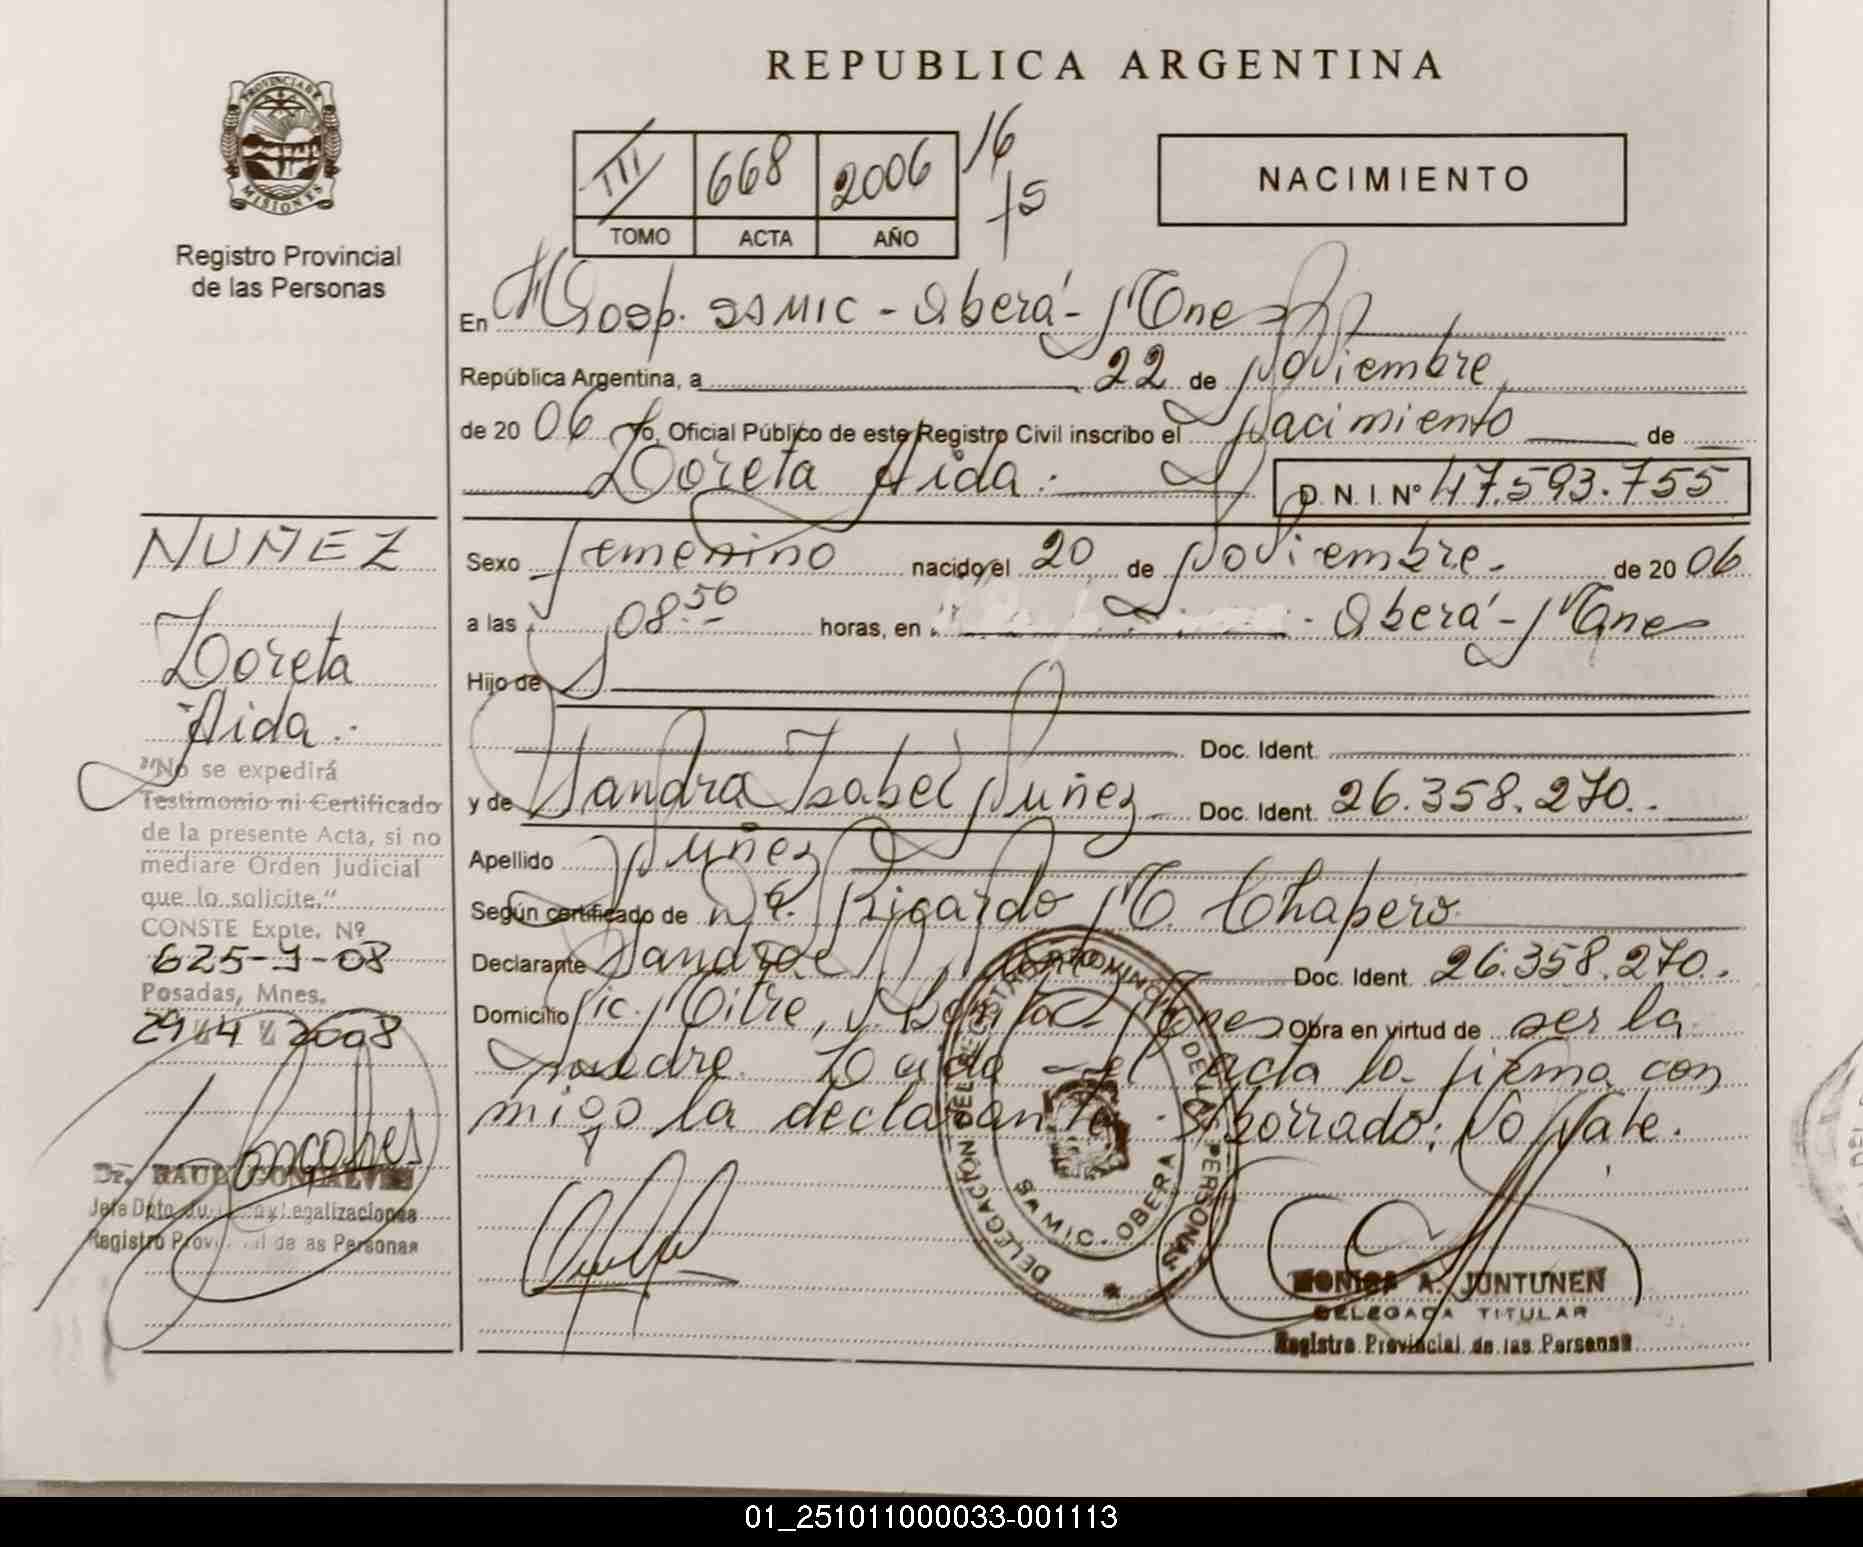 REPUBLICA ARGENTINA
PROVINCIA DE
MISIONES
Registro Provincial
de las Personas
III 668 2006 16
15
TOMO ACTA AÑO
NACIMIENTO
En Hosp. SAMIC - Oberá - Mnes
República Argentina, a 22 de Noviembre
de 20 06 Yo, Oficial Público de este Registro Civil inscribo el Nacimiento de
Loreta Aida.
D. N. I. Nº 47.593.755
Sexo femenino nacido el 20 de Noviembre. de 20 06
a las 08.50 horas, en - Oberá - Mnes
Hijo de
Doc. Ident.
y de Sandra Isabel Nuñez Doc. Ident. 26.358.270.
Apellido Nuñez
Según certificado de Ricardo M. Chapero
Declarante Sandra Doc. Ident. 26.358.270.
Domicilio Mitre, Mnes Obra en virtud de ser la
madre. Leida el acta la firma con
migo la declarante. borrado: No Vale.
NUÑEZ
Loreta
Aida.
"No se expedirá
Testimonio ni Certificado
de la presente Acta, si no
mediare Orden Judicial
que lo solicite."
CONSTE Expte. Nº
625-J-08
Posadas, Mnes.
29 4 2008
Dr. RAUL GONCALVES
Jefe Dpto. y Legalizaciones
Registro Provincial de las Personas
DELEGACIÓN DEL REGISTRO PROVINCIAL DE LAS PERSONAS
SAMIC. OBERA
MONICA A. JUNTUNEN
DELEGADA TITULAR
Registro Provincial de las Personas
01_251011000033-001113